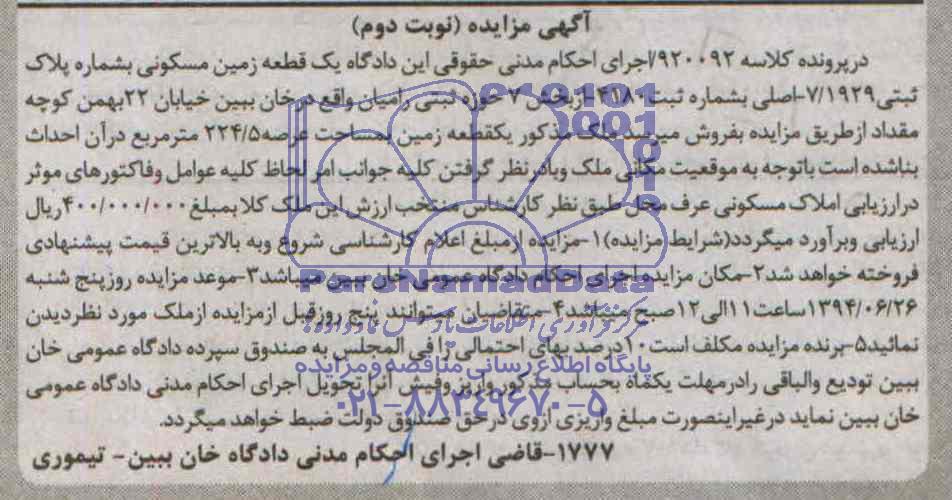 آگهی مزایده (نوبت دوم)
درپرونده کلاسه ۹۲۰۰۹۲/اجرای احکام مدنی حقوقی این دادگاه یک قطعه زمین مسکونی بشماره پلاک
ثبتی۷/۱۹۲۹-اصلی بشماره ثبت۴۱۸۰ ازبخش ۷ حوزه ثبتی رامیان واقع درخان ببین خیابان ۲۲بهمن کوچه
مقداد ازطریق مزایده بفروش میرسد ملک مذکور یکقطعه زمین بمساحت عرصه۲۲۴/۵ مترمربع درآن احداث
بناشده است باتوجه به موقعیت مکانی ملک وبادرنظر گرفتن کلیه جوانب امر لحاظ کلیه عوامل وفاکتورهای موثر
درارزیابی املاک مسکونی عرف محل طبق نظر کارشناس منتخب ارزش این ملک کلا بمبلغ ۴۰۰/۰۰۰/۰۰۰ریال
ارزیابی وبرآورد میگردد(شرایط مزایده)۱-مزایده ازمبلغ اعلام کارشناسی شروع وبه بالاترین قیمت پیشنهادی
فروخته خواهد شد۲-مکان مزایده اجرای احکام دادگاه عمومی خان ببین میباشد۳-موعد مزایده روزپنج شنبه
۱۳۹۴/۰۶/۲۶ساعت۱۱الی۱۲صبح میباشد۴-متقاضیان میتوانند پنج روزقبل ازمزایده ازملک مورد نظردیدن
نمائید۵-برنده مزایده مکلف است۱۰درصد بهای احتمالی را فی المجلس به صندوق سپرده دادگاه عمومی خان
ببین تودیع والباقی رادرمهلت یکماه بحساب مذکور واریز وفیش آنرا تحویل اجرای احکام مدنی دادگاه عمومی
خان ببین نماید درغیراینصورت مبلغ واریزی ازوی درحق صندوق دولت ضبط خواهد میگردد.
۱۷۷۷-قاضی اجرای احکام مدنی دادگاه خان ببین- تیموری
ParsNamadData
مرکز فرآوری اطلاعات پارس نماد داده ها
پایگاه اطلاع رسانی مناقصه و مزایده
۰۲۱-۸۸۳۴۹۶۷۰-۵